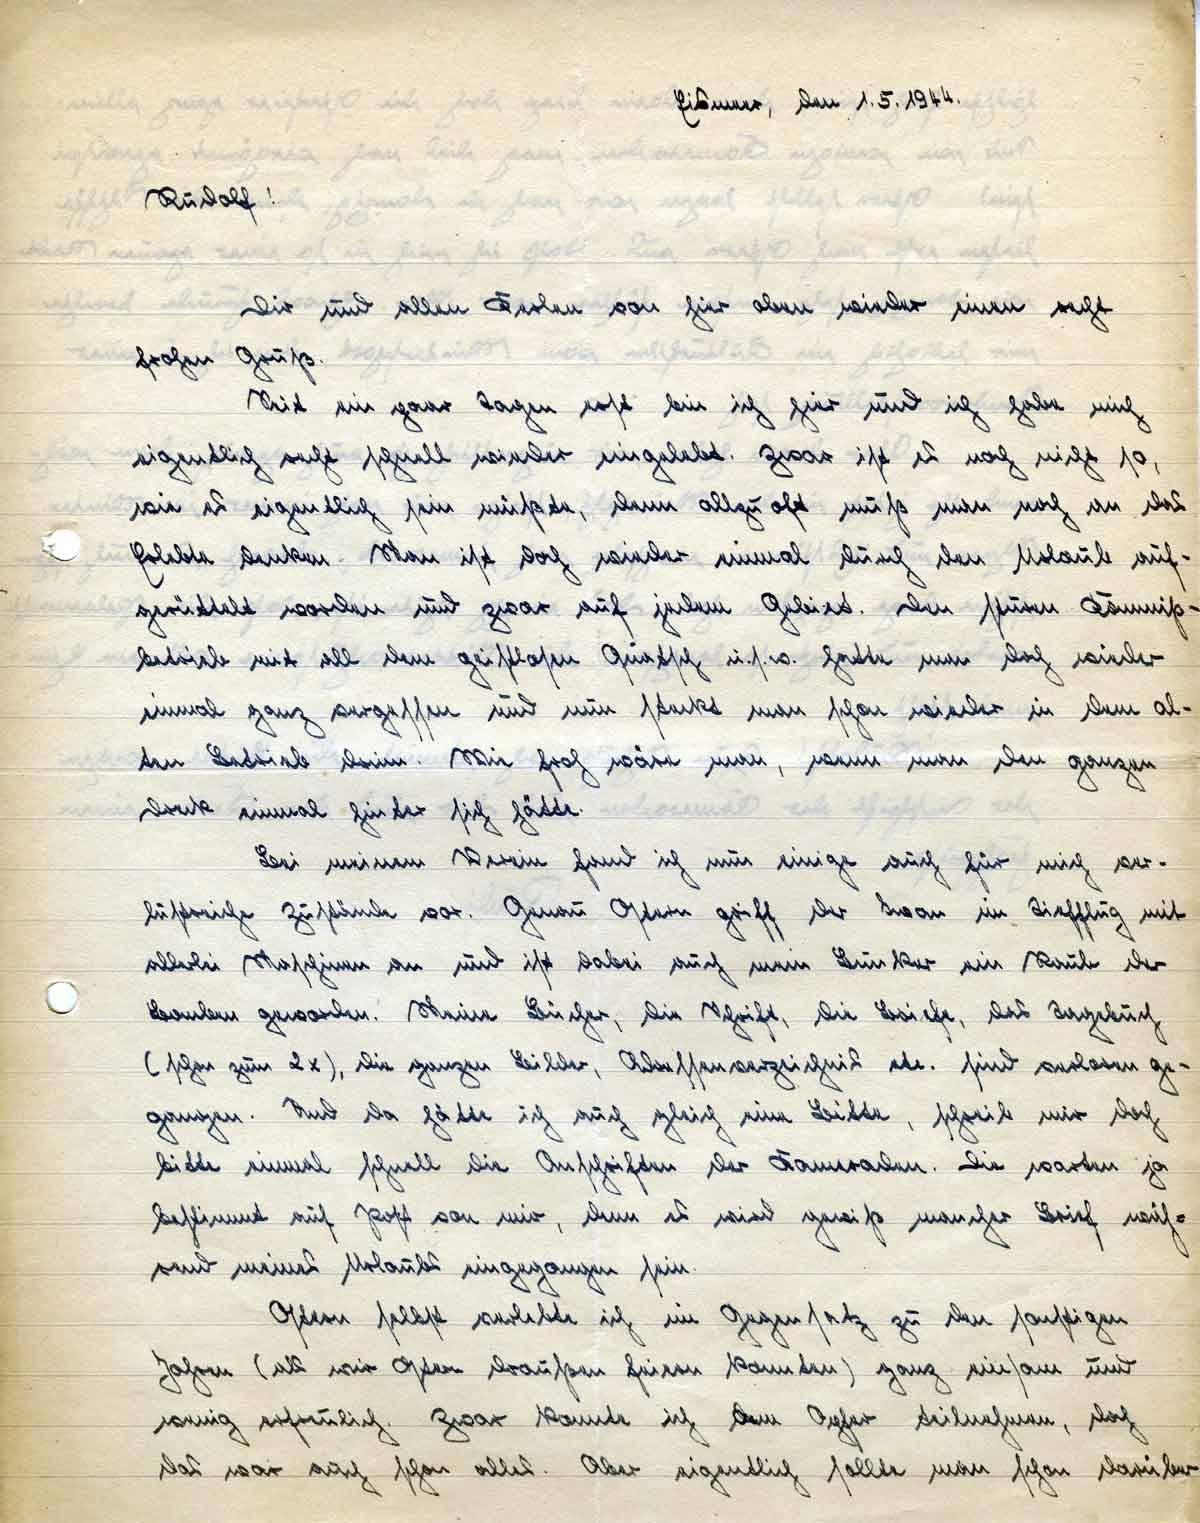 Eismeer, den 1.5.1944.
Rudolf!
Dir und allen Kerlen von hier oben wieder einen recht
frohen Gruß.
Seit ein paar Tagen erst bin ich hier und ich habe mich
eigentlich recht schnell wieder eingelebt. Zwar ist es noch nicht so,
wie es eigentlich sein müsste, denn allzuoft muß man noch an das
Erlebte denken. Man ist doch wieder einmal durch den Urlaub auf-
gerüttelt worden und zwar auf jedem Gebiet. Den sturen Kommiß-
betrieb mit all dem geistlosen Quatsch u.s.w. hatte man doch wieder
einmal ganz vergessen und nun steckt man schon wieder in dem al-
ten Betrieb drin. Wie froh wäre man, wenn man den ganzen
Dreck einmal hinter sich hätte.
Bei meinem Verein fand ich nun einige auch für mich ver-
lustreiche Zustände vor. Genau Ostern griff der Iwan im Tiefflug mit
allerlei Maschinen an und ist dabei auch mein Bunker ein Raub der
Bomben geworden. Meine Bücher, die Schrift, die Briefe, das Tagebuch
(schon zum 2x), die ganzen Bilder, Adressenverzeichnis etc. sind verloren ge-
gangen. Und da hätte ich auch gleich eine Bitte, schreib mir doch
bitte einmal schnell die Anschriften der Kameraden. Die warten ja
bestimmt auf Post von mir, denn es wird gewiß mancher Brief wäh-
rend meines Urlaubs eingegangen sein.
Ostern selbst verlebte ich im Gegensatz zu den sonstigen
Jahren (als wir Ostern draußen feiern konnten) ganz einsam und
wenig erfreulich. Zwar konnte ich dem Opfer teilnehmen, doch
das war auch schon alles. Aber eigentlich sollte man schon darüber